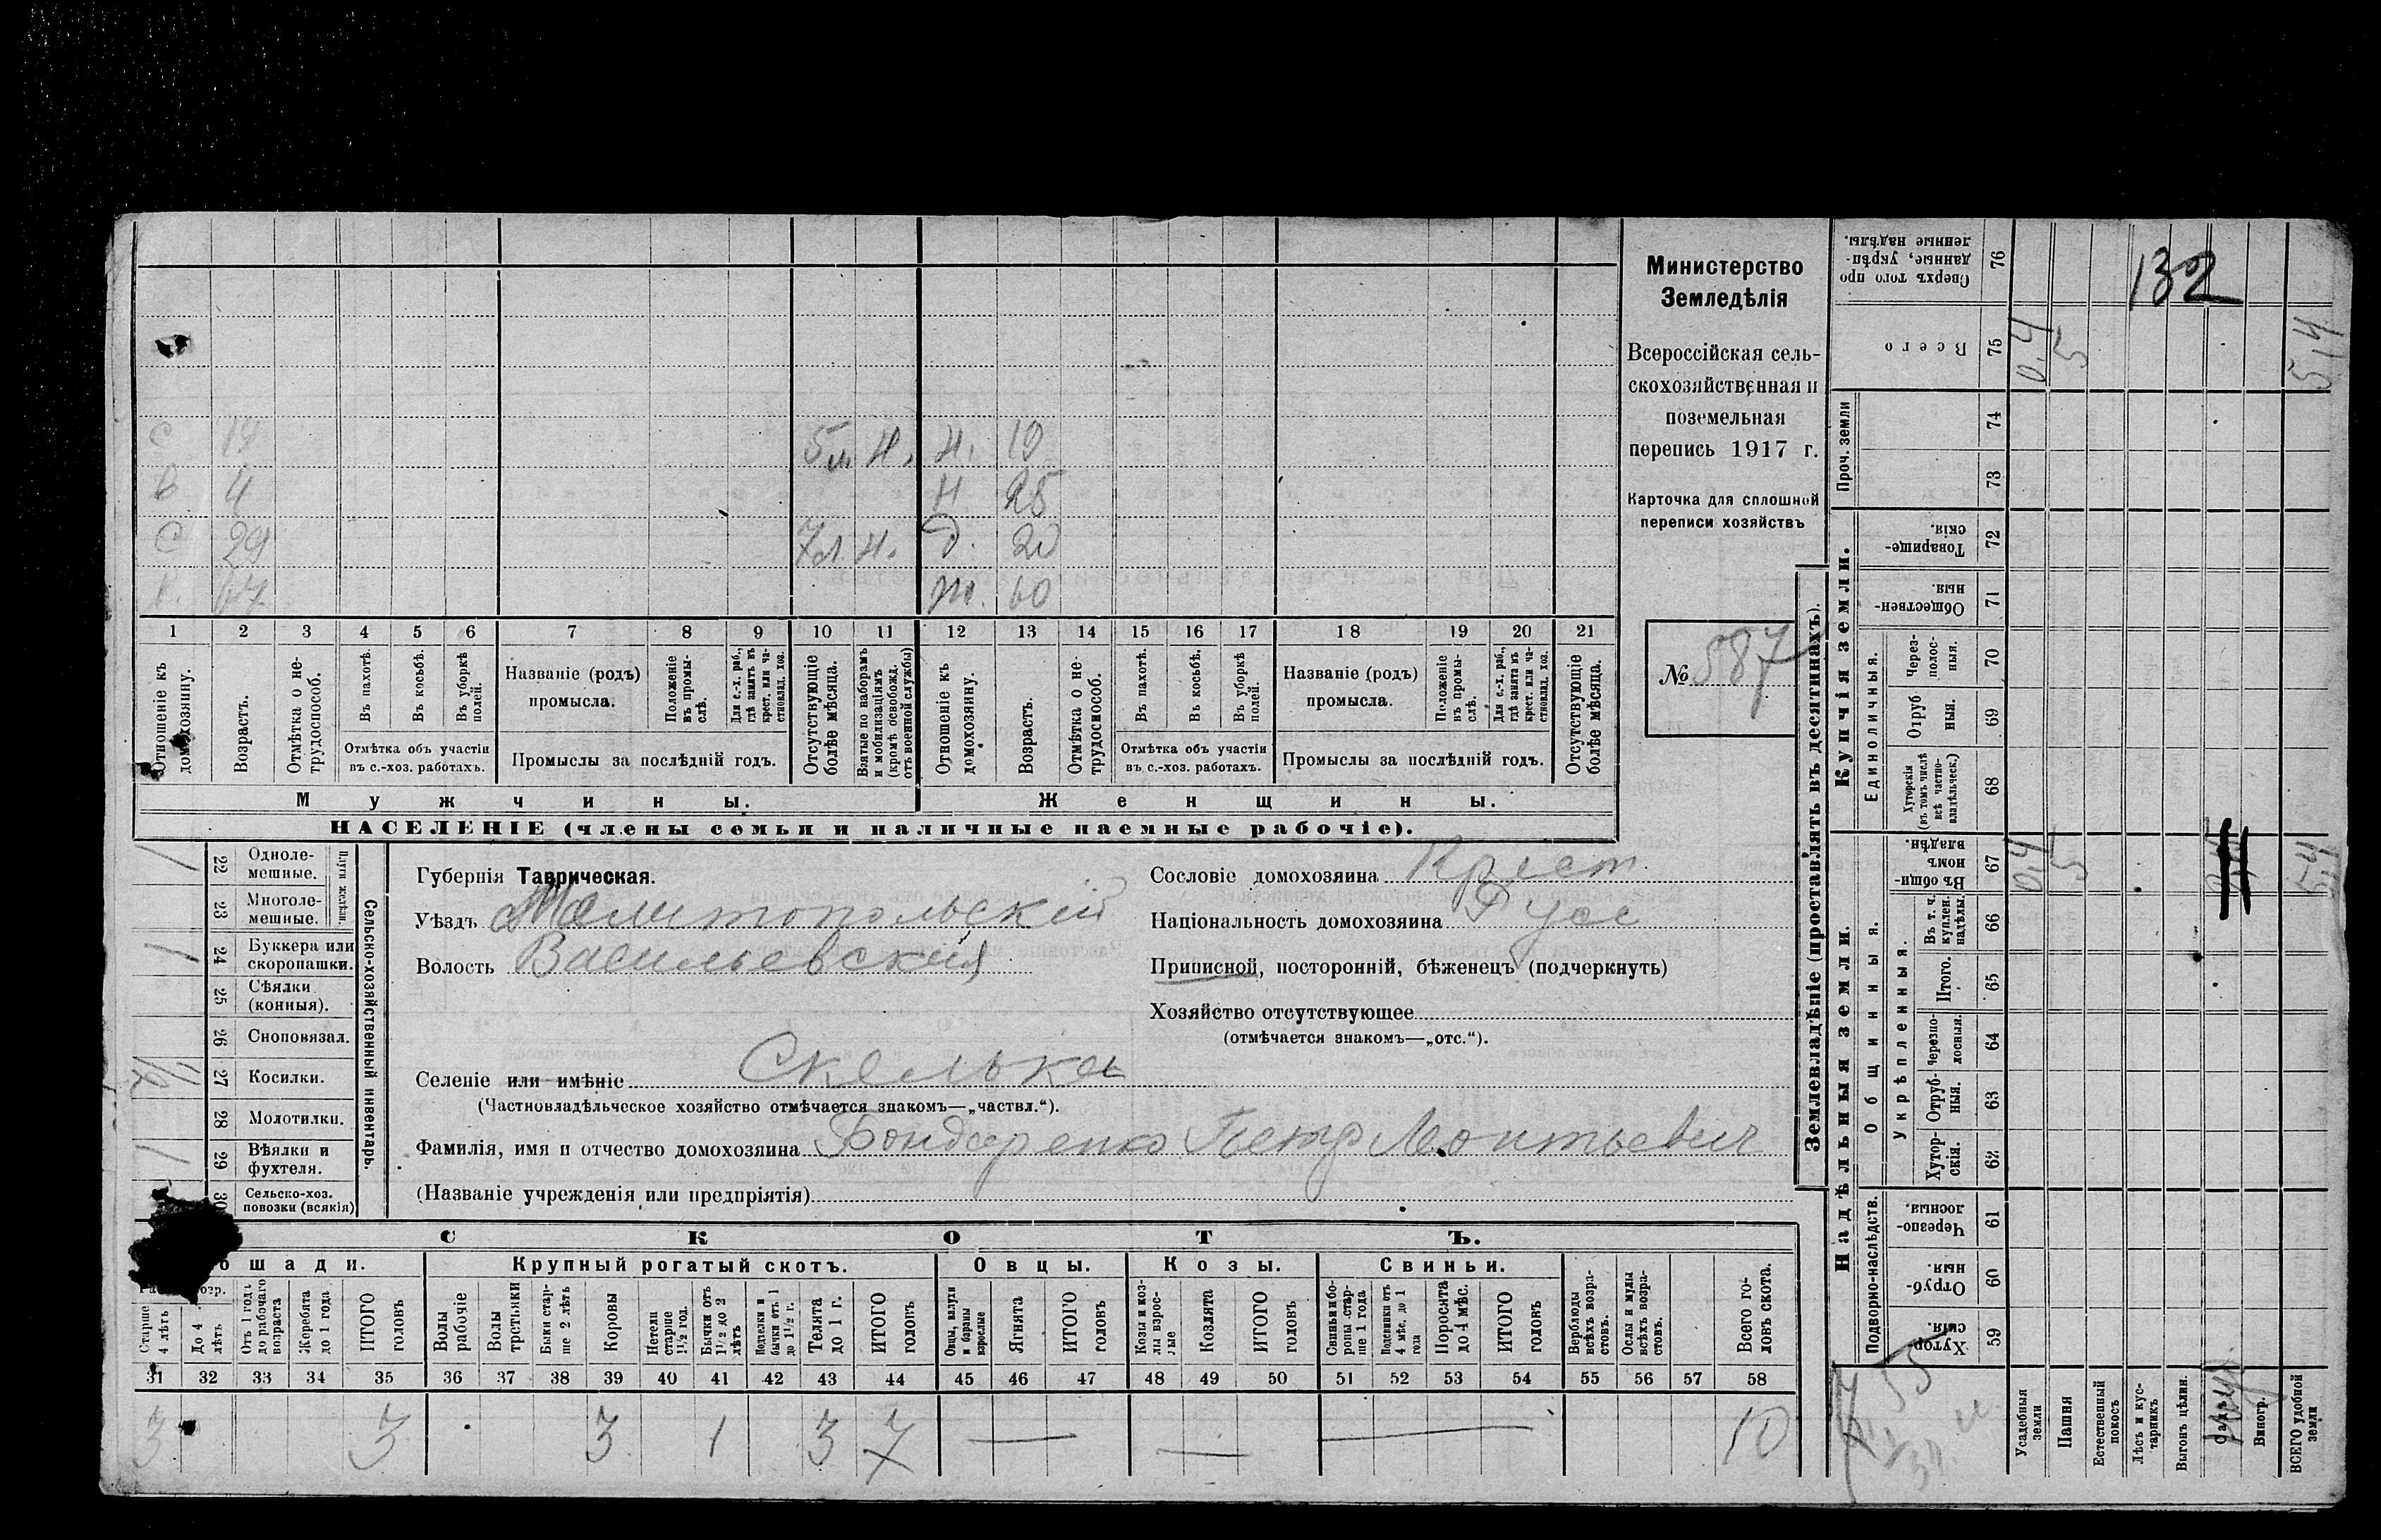 Министерство
Земледѣлія
Всероссійская сель-
скохозяйственная и
поземельная
перепись 1917 г.
Карточка для сплошной
переписи хозяйствъ
№ 587
132
с 17 5 м. Н. Н. 10
в 4 Н 25
с 29 7 л. Н. д. 20
м. 60
1 2 3 4 5 6 7 8 9 10 11 12 13 14 15 16 17 18 19 20 21
Отношеніе къ домохозяину.
Возрастъ.
Отмѣтка о не-трудоспособ.
Въ пахотѣ.
Въ косьбѣ.
Въ уборкѣ полей.
Отмѣтка объ участіи
въ с.-хоз. работахъ.
Названіе (родъ)
промысла.
Положеніе въ промы-слѣ.
Для с.-х. раб., гдѣ занятъ въ крест. или ча-стновлад. хоз.
Промыслы за послѣдній годъ.
Отсутствующіе болѣе мѣсяца.
Взятые по наборамъ и мобилизаціямъ (кромѣ освобожд. отъ военной службы)
Отношеніе къ домохозяину.
Возрастъ.
Отмѣтка о не-трудоспособ.
Въ пахотѣ.
Въ косьбѣ.
Въ уборкѣ полей.
Отмѣтка объ участіи
въ с.-хоз. работахъ.
Названіе (родъ)
промысла.
Положеніе въ промы-слѣ.
Для с.-х. раб., гдѣ занята въ крест. или ча-стновлад. хоз.
Промыслы за послѣдній годъ.
Отсутствующіе болѣе мѣсяца.
Мужчины.
Женщины.
НАСЕЛЕНІЕ (члены семьи и наличные наемные рабочіе).
Сельско-хозяйственный инвентарь.
Плуги желѣзн.
22 Одноле-мешные. 1
23 Многоле-мешные.
24 Буккера или скоропашки. 1
25 Сѣялки (конныя).
26 Сноповязал.
27 Косилки.
28 Молотилки.
29 Вѣялки и фухтеля. 1
30 Сельско-хоз. повозки (всякія)
Губернія Таврическая.
Уѣздъ Мелитопольскій
Волость Васильевская
Селеніе или имѣніе Скелька
(Частновладѣльческое хозяйство отмѣчается знакомъ—„частвл.“).
Фамилія, имя и отчество домохозяина Бондаренко Петр Леонтьевич
(Названіе учрежденія или предпріятія)
Сословіе домохозяина Крест
Національность домохозяина Русс
Приписной, посторонній, бѣженецъ (подчеркнуть)
Хозяйство отсутствующее
(отмѣчается знакомъ—„отс.“).
СКОТЪ.
Крупный рогатый скотъ.
Овцы.
Козы.
Свиньи.
Старше 4 лѣтъ
До 4 лѣтъ
Отъ 1 года до рабочаго возраста
Жеребята до 1 года
ИТОГО головъ
Волы рабочіе
Волы третьяки
Быки стар-ше 2 лѣтъ
Коровы
Нетели старше 1½ год.
Бычки отъ 1½ до 2 лѣтъ
Подтелки и бычки отъ 1 до 1½ г.
Телята до 1 г.
ИТОГО головъ
Овцы, валухи и бараны взрослые
Ягнята
ИТОГО головъ
Козы и коз-лы взрос-лые
Козлята
ИТОГО головъ
Свиньи и бо-ровы стар-ше 1 года
Подсвинки отъ 4 мѣс. до 1 года
Поросята до 4 мѣс.
ИТОГО головъ
Верблюды всѣхъ возра-стовъ.
Ослы и мулы всѣхъ возра-стовъ.
Всего го-ловъ скота.
31 32 33 34 35 36 37 38 39 40 41 42 43 44 45 46 47 48 49 50 51 52 53 54 55 56 57 58
3 3 3 1 3 7 — — — 10
Землевладѣніе (проставлять въ десятинахъ).
Надѣльныя земли.
Купчія земли.
Проч. земли
Подворно-наслѣдств.
Общинныя.
Укрѣпленныя.
Единоличныя.
76 Сверхъ того про данные, укрѣп-ленные надѣлы.
75 Всего 0,4 5 5,4
74
73
72 Товарище-скія.
71 Обществен-ныя
70 Через-полос-ныя.
69 Отруб ныя.
68 Хуторскія (въ томъ числѣ всѣ частно-владѣльческ.)
67 Въ общи-номъ владѣн. 0,4 5 5,4
66 Въ т. ч. куплен. надѣлы.
65 Итого.
64 Черезпо-лосныя.
63 Отруб-ныя.
62 Хутор-скія.
61 Черезпо-лосныя.
60 Отруб-ныя.
59 Хутор-скія.
Усадебныя земли
Пашня
Естественный покосъ
Лѣсъ и кус-тарникъ
Выгонъ цѣлин.
Виногр.
ВСЕГО удобной земли